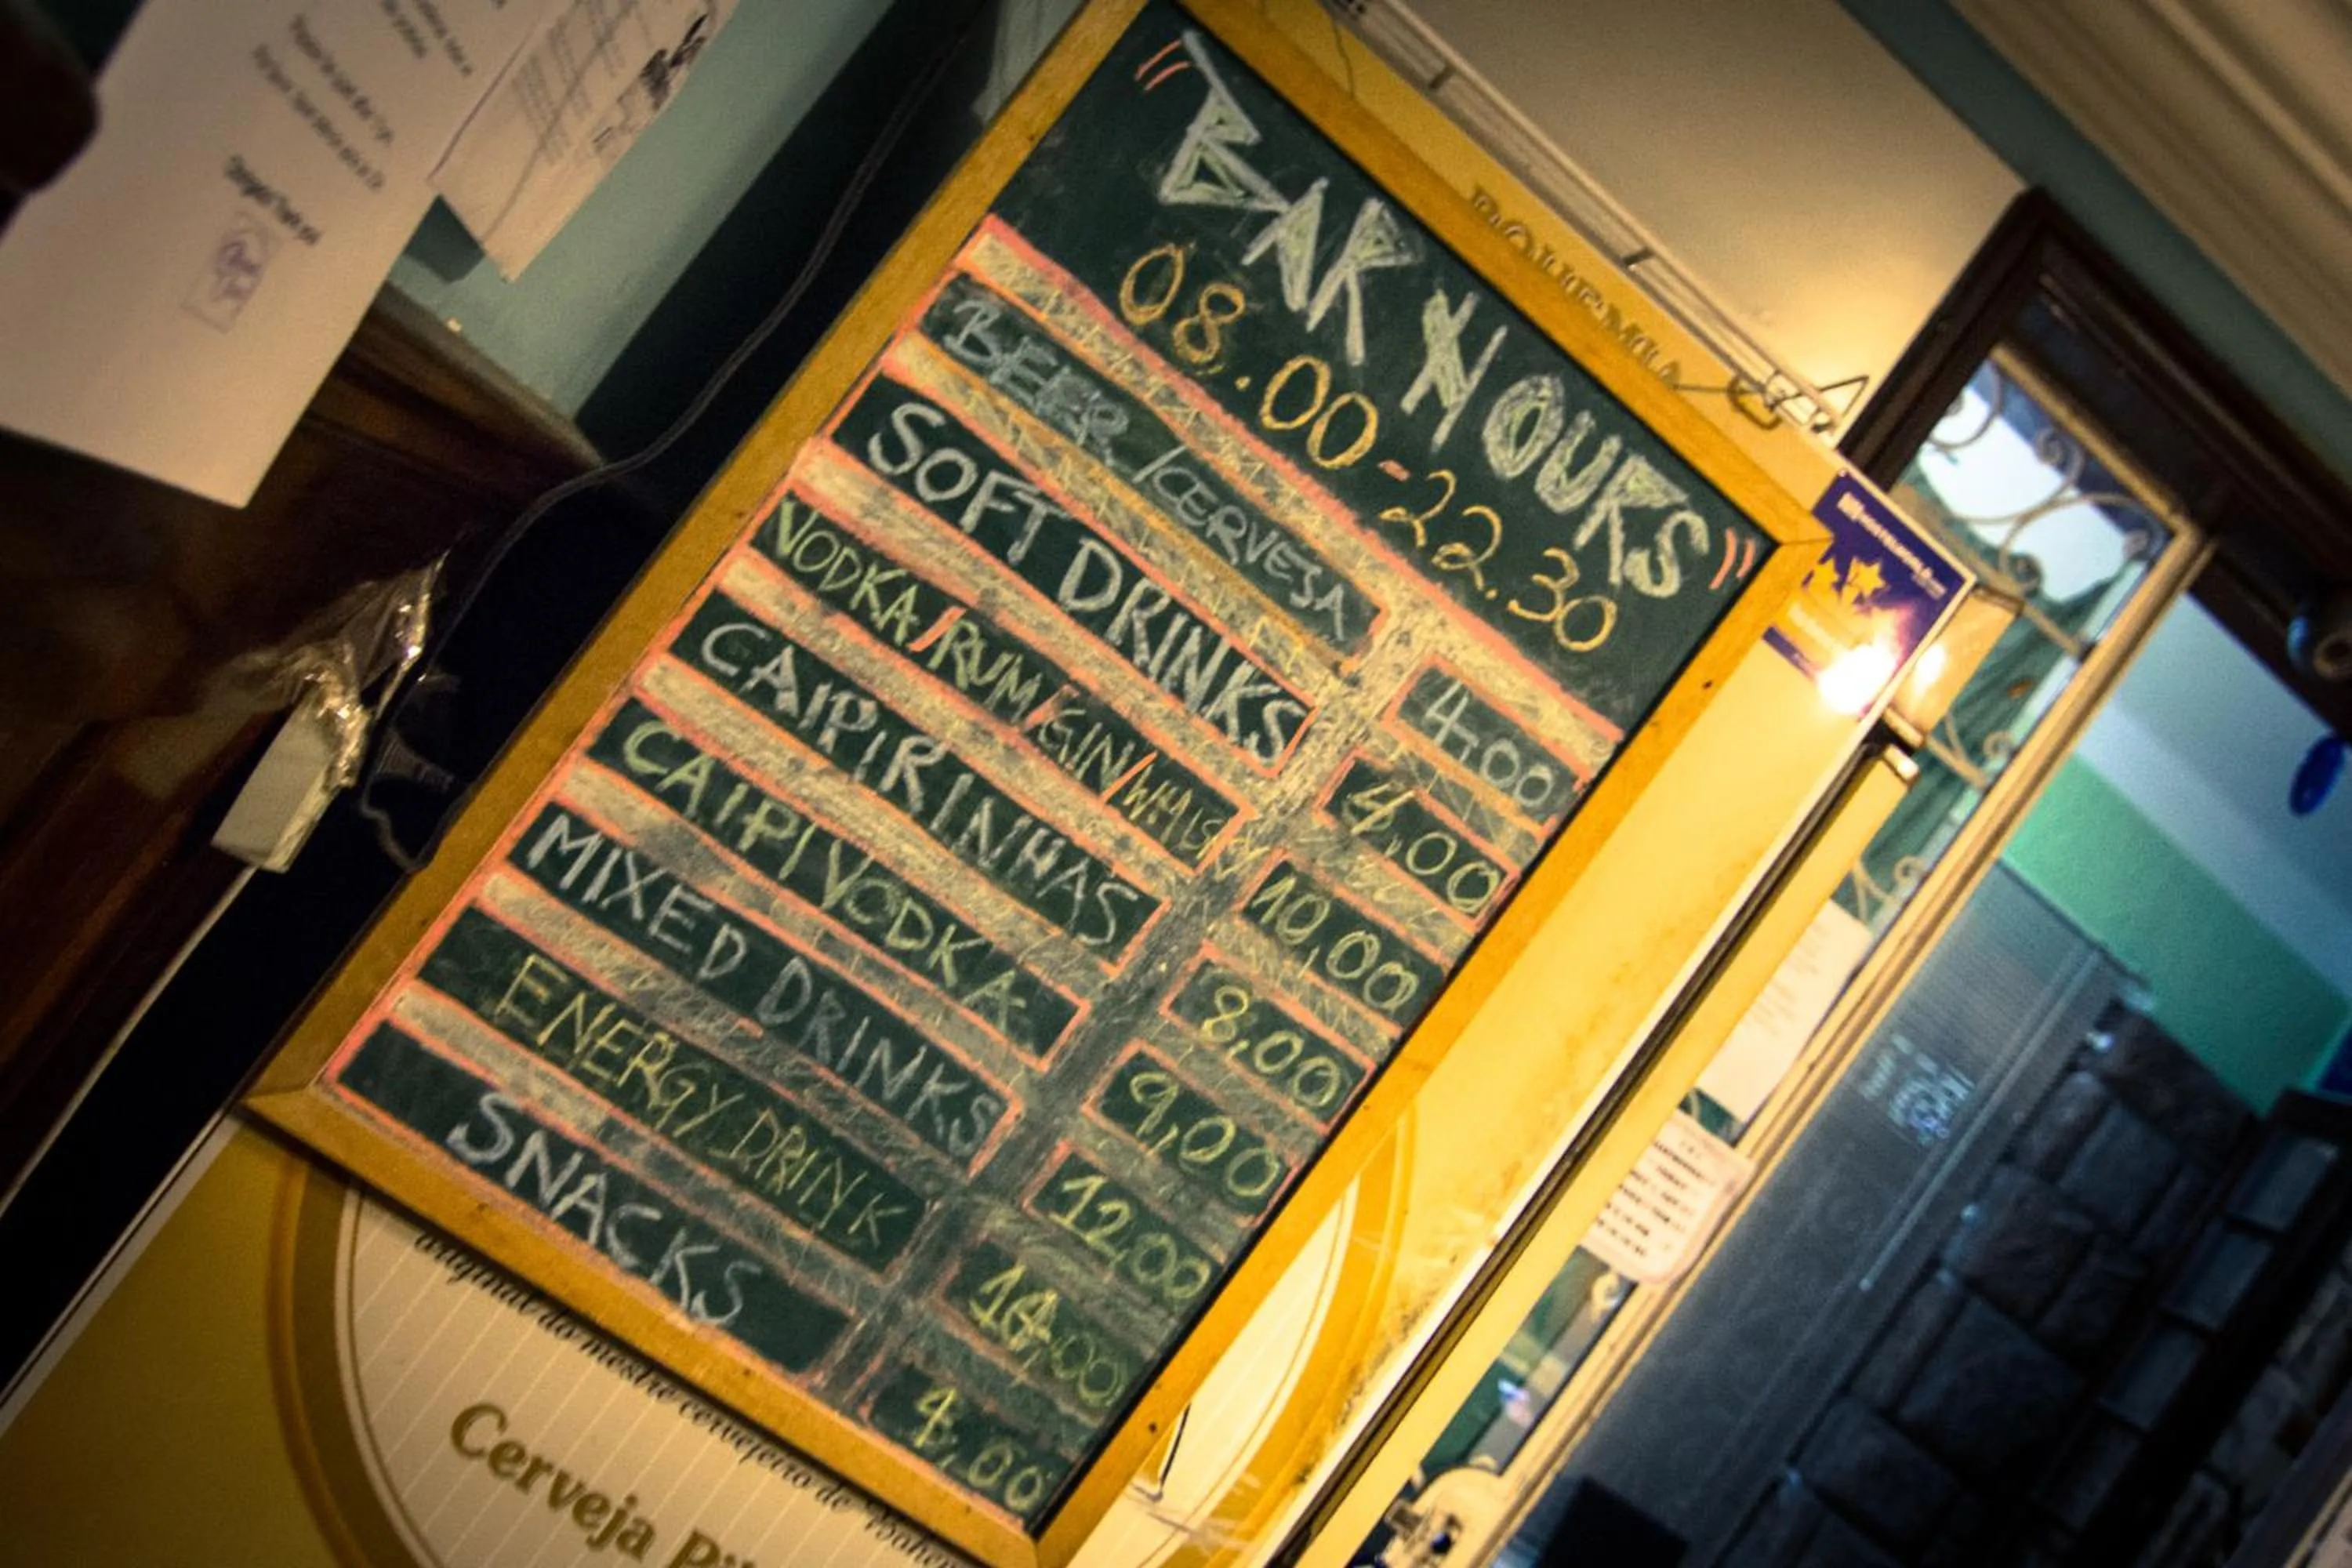 "BAR HOURS"
08.00-22.30
BEER/CERVESA 4,00
SOFT DRINKS 4,00
VODKA/RUM/GIN/WHISKY 10,00
CAIPIRINHAS 8,00
CAIPIVODKA 9,00
MIXED DRINKS 12,00
ENERGY DRINK
SNACKS 4,00
BOHEMIA
original do mestre cervejeiro de
Cerveja